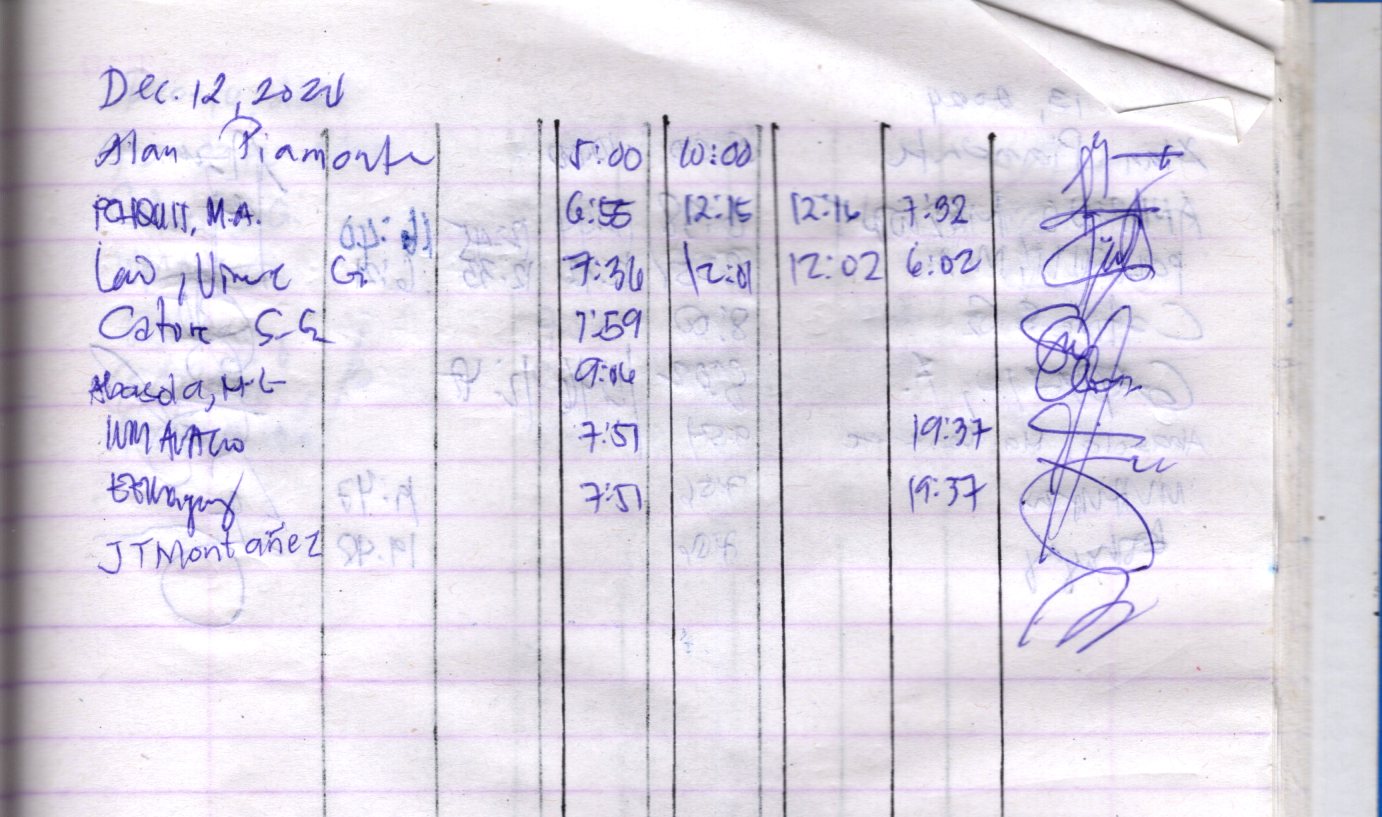 Dec. 12, 2024
Alan Piamonte 5:00 10:00
M.A. 6:55 12:15 12:16 7:32
Lao, Vince G. 7:36 12:01 12:02 6:02
Catore S.G. 7:59
Abasola, M.E 9:06
7:51 19:37
7:51 19:37
JTMontañez